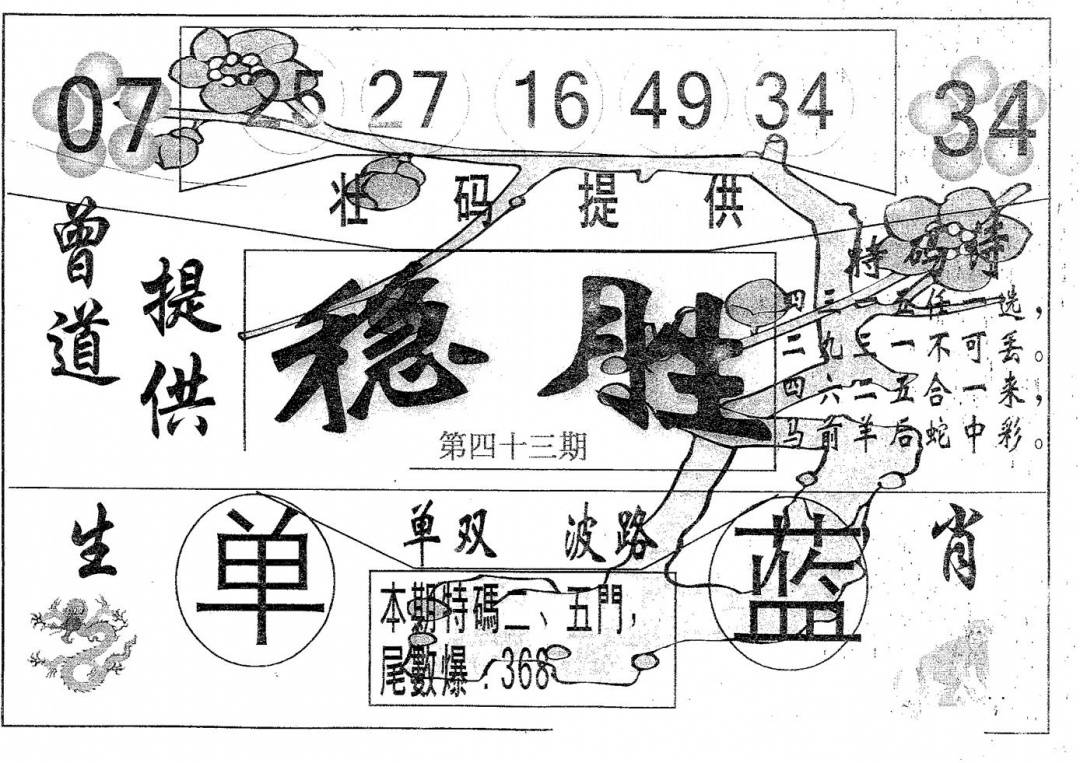 07 25 27 16 49 34 34
壮码提供
曾道
提供
稳胜
第四十三期
特码诗
四三一五任一选，
二九三一不可丢。
四六二五合一来，
马前羊后蛇中彩。
生 单 单双 波路 蓝 肖
本期特碼二、五門，
尾數爆：368